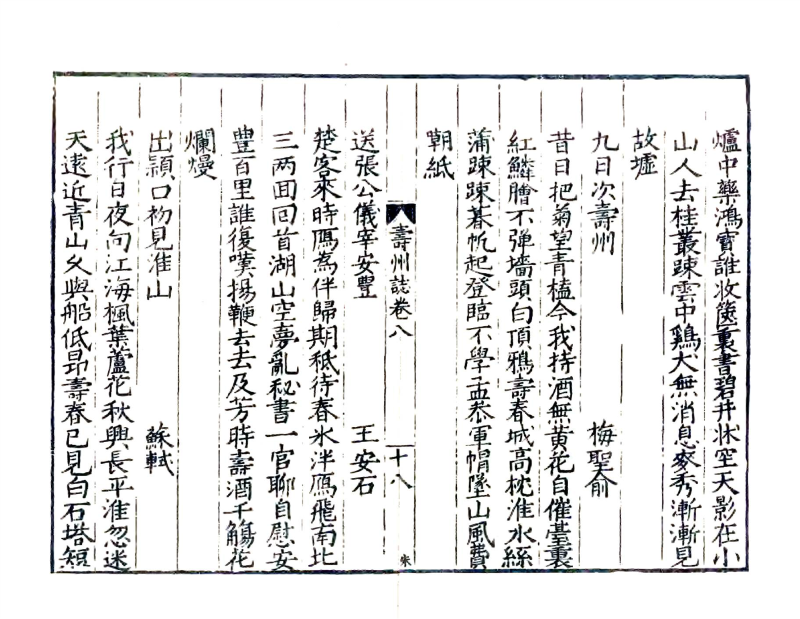 爐中藥鴻寶誰收篋裏書碧井牀空天影在小
山人去桂叢踈雲中鷄犬無消息麥秀漸漸見
故墟
九日次壽州 梅聖俞
昔日把菊望青樯今我持酒無黄花自催臺裏
紅鱗膾不彈墻頭白頂鴉壽春城高枕淮水絲
蒲踈踈暮帆起登臨不學孟叅軍帽墜山風費
朝紙
壽州誌卷八
十八
朱
送張公儀宰安豐 王安石
楚客來時鴈為伴歸期秪待春氷泮鴈飛南北
三两回回首湖山空夢亂秘書一官聊自慰安
豐百里誰復嘆揚鞭去去及芳時壽酒千觴花
爛熳
出頴口初見淮山 蘇軾
我行日夜向江海楓葉蘆花秋興長平淮忽迷
天遠近青山乆與船低昂壽春已見白石塔短